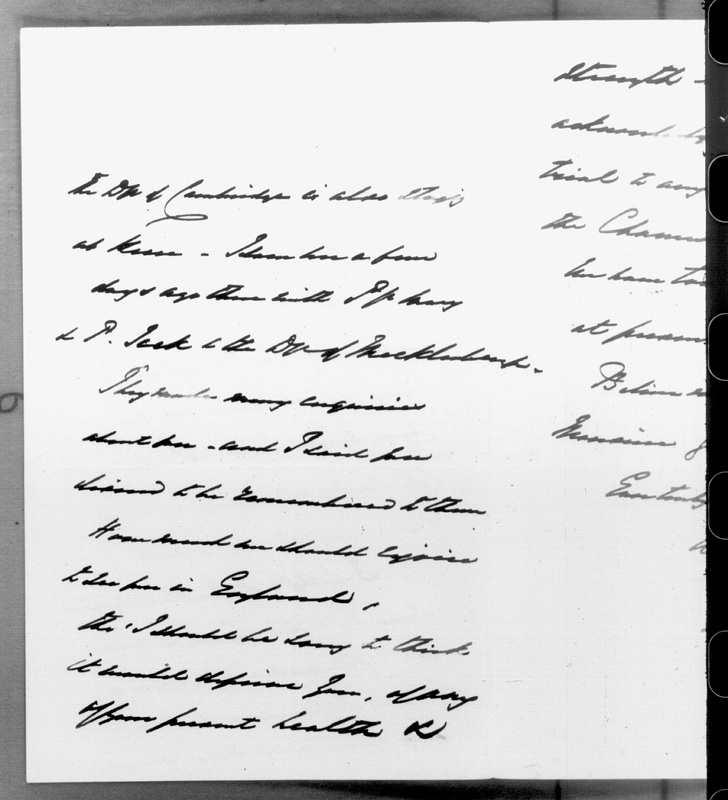 the Dss of Cambridge is also staying
at Kew – I saw her a few
days ago there with Pss Mary
& P. Teck & the Dss of Mecklenburg.
They made many enquiries
about you – and I said you
desired to be remembered to them
How much we should rejoice
to see you in England,
tho' I should be sorry to think
it would deprive you, of any
of your present health &
strength –
acknowledg
trial to any
the Chann
at presen
Believe m